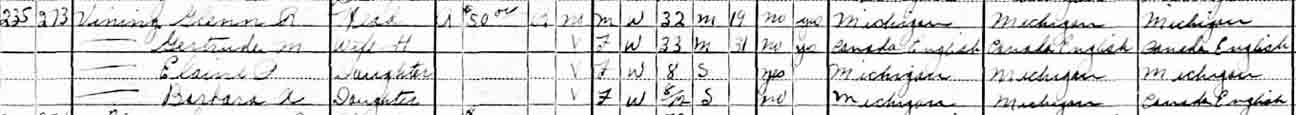 235 273 Vining Glenn R Head R $50.00 R No M W 32 M 19 no yes Michigan Michigan Michigan
— Gertrude M Wife H V F W 33 M 31 no yes Canada English Canada English Canada English
— Elaine Daughter V F W 8 S yes Michigan Michigan Michigan
— Barbara A Daughter V F W 8/12 S no Michigan Michigan Canada English